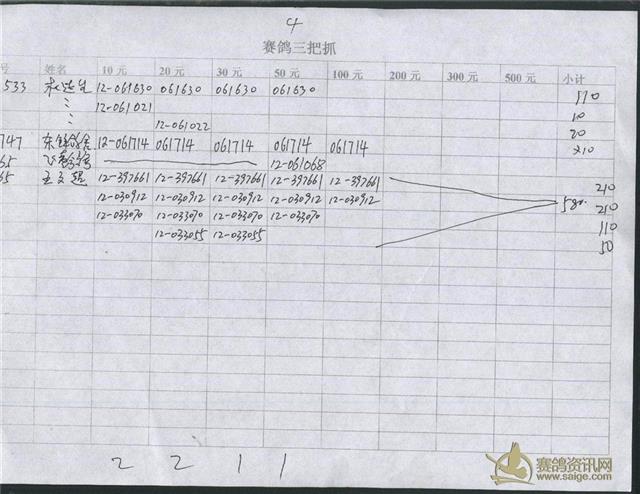 4
赛鸽三把抓
号 姓名 10 元 20 元 30 元 50 元 100 元 200 元 300 元 500 元 小计
533 12-061630 061630 061630 061630 110
12-061021 10
12-061022 20
747 12-061714 061714 061714 061714 061714 210
65 12-061068
65 王文超 12-397661 12-397661 12-397661 12-397661 12-397661 210
12-030912 12-030912 12-030912 12-030912 12-030912 580 210
12-033070 12-033070 12-033070 12-033070 110
12-033055 12-033055 50
2 2 1 1
赛鸽资讯网
www.saige.com